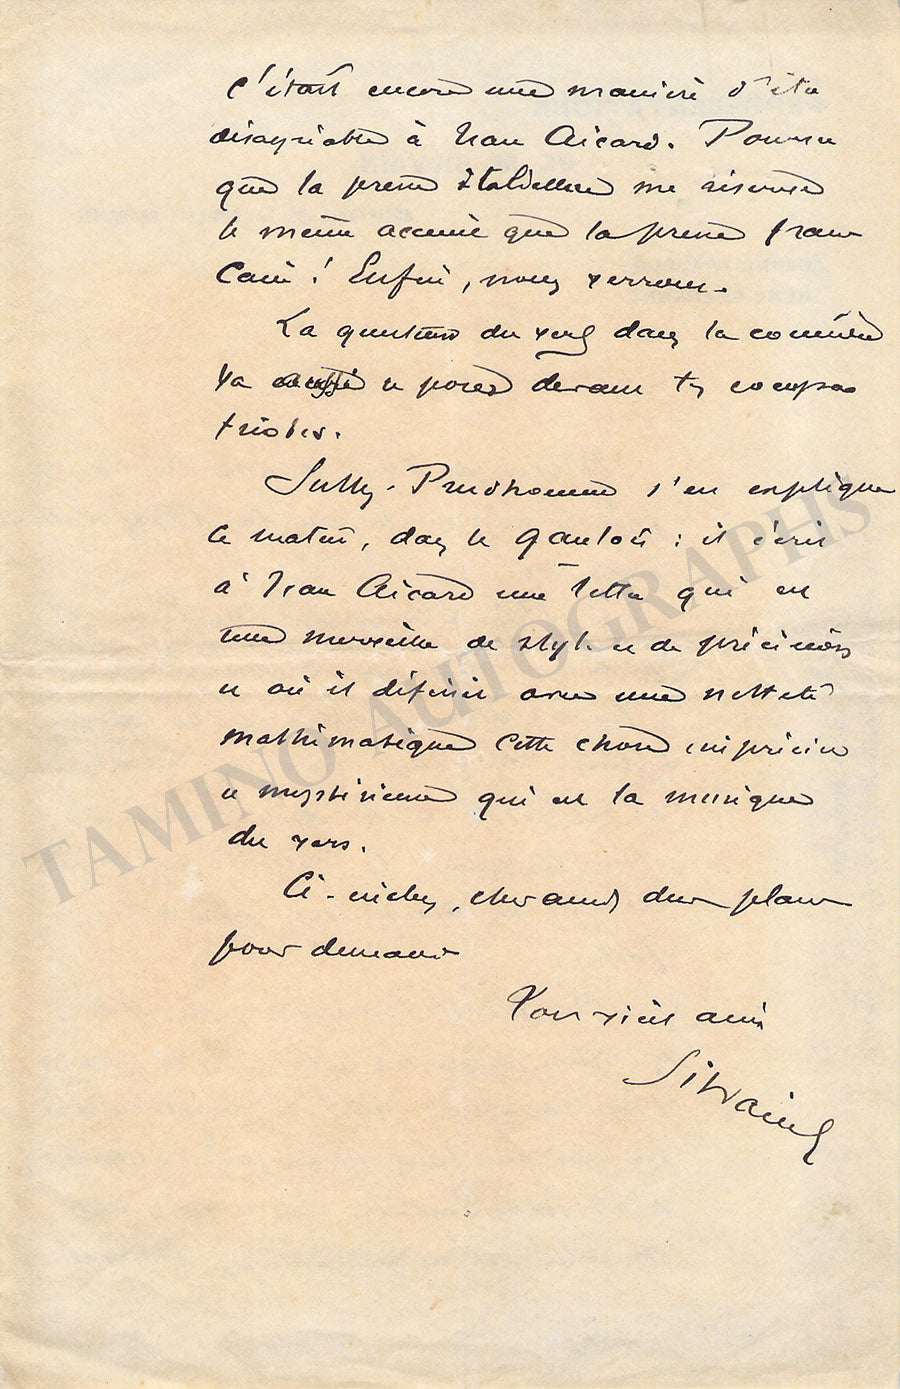 c'était encore une manière d'être
désagréable à Jean Aicard. Pourvu
que la presse Italienne me réserve
le même accueil que la presse fran
çaise ! Enfin, nous verrons.
La question du vers dans la comédie
va aussi se poser devant tes compa
triotes.
Sully-Prudhomme s'en explique
ce matin, dans le Gaulois : il écrit
à Jean Aicard une lettre qui est
une merveille de style et de précision
et où il définit avec une netteté
mathématique cette chose imprécise
et mystérieuse qui est la musique
du vers.
Ci-inclus, cher ami, deux places
pour demain
Ton vieil ami
Silvain
TAMINO AUTOGRAPHS